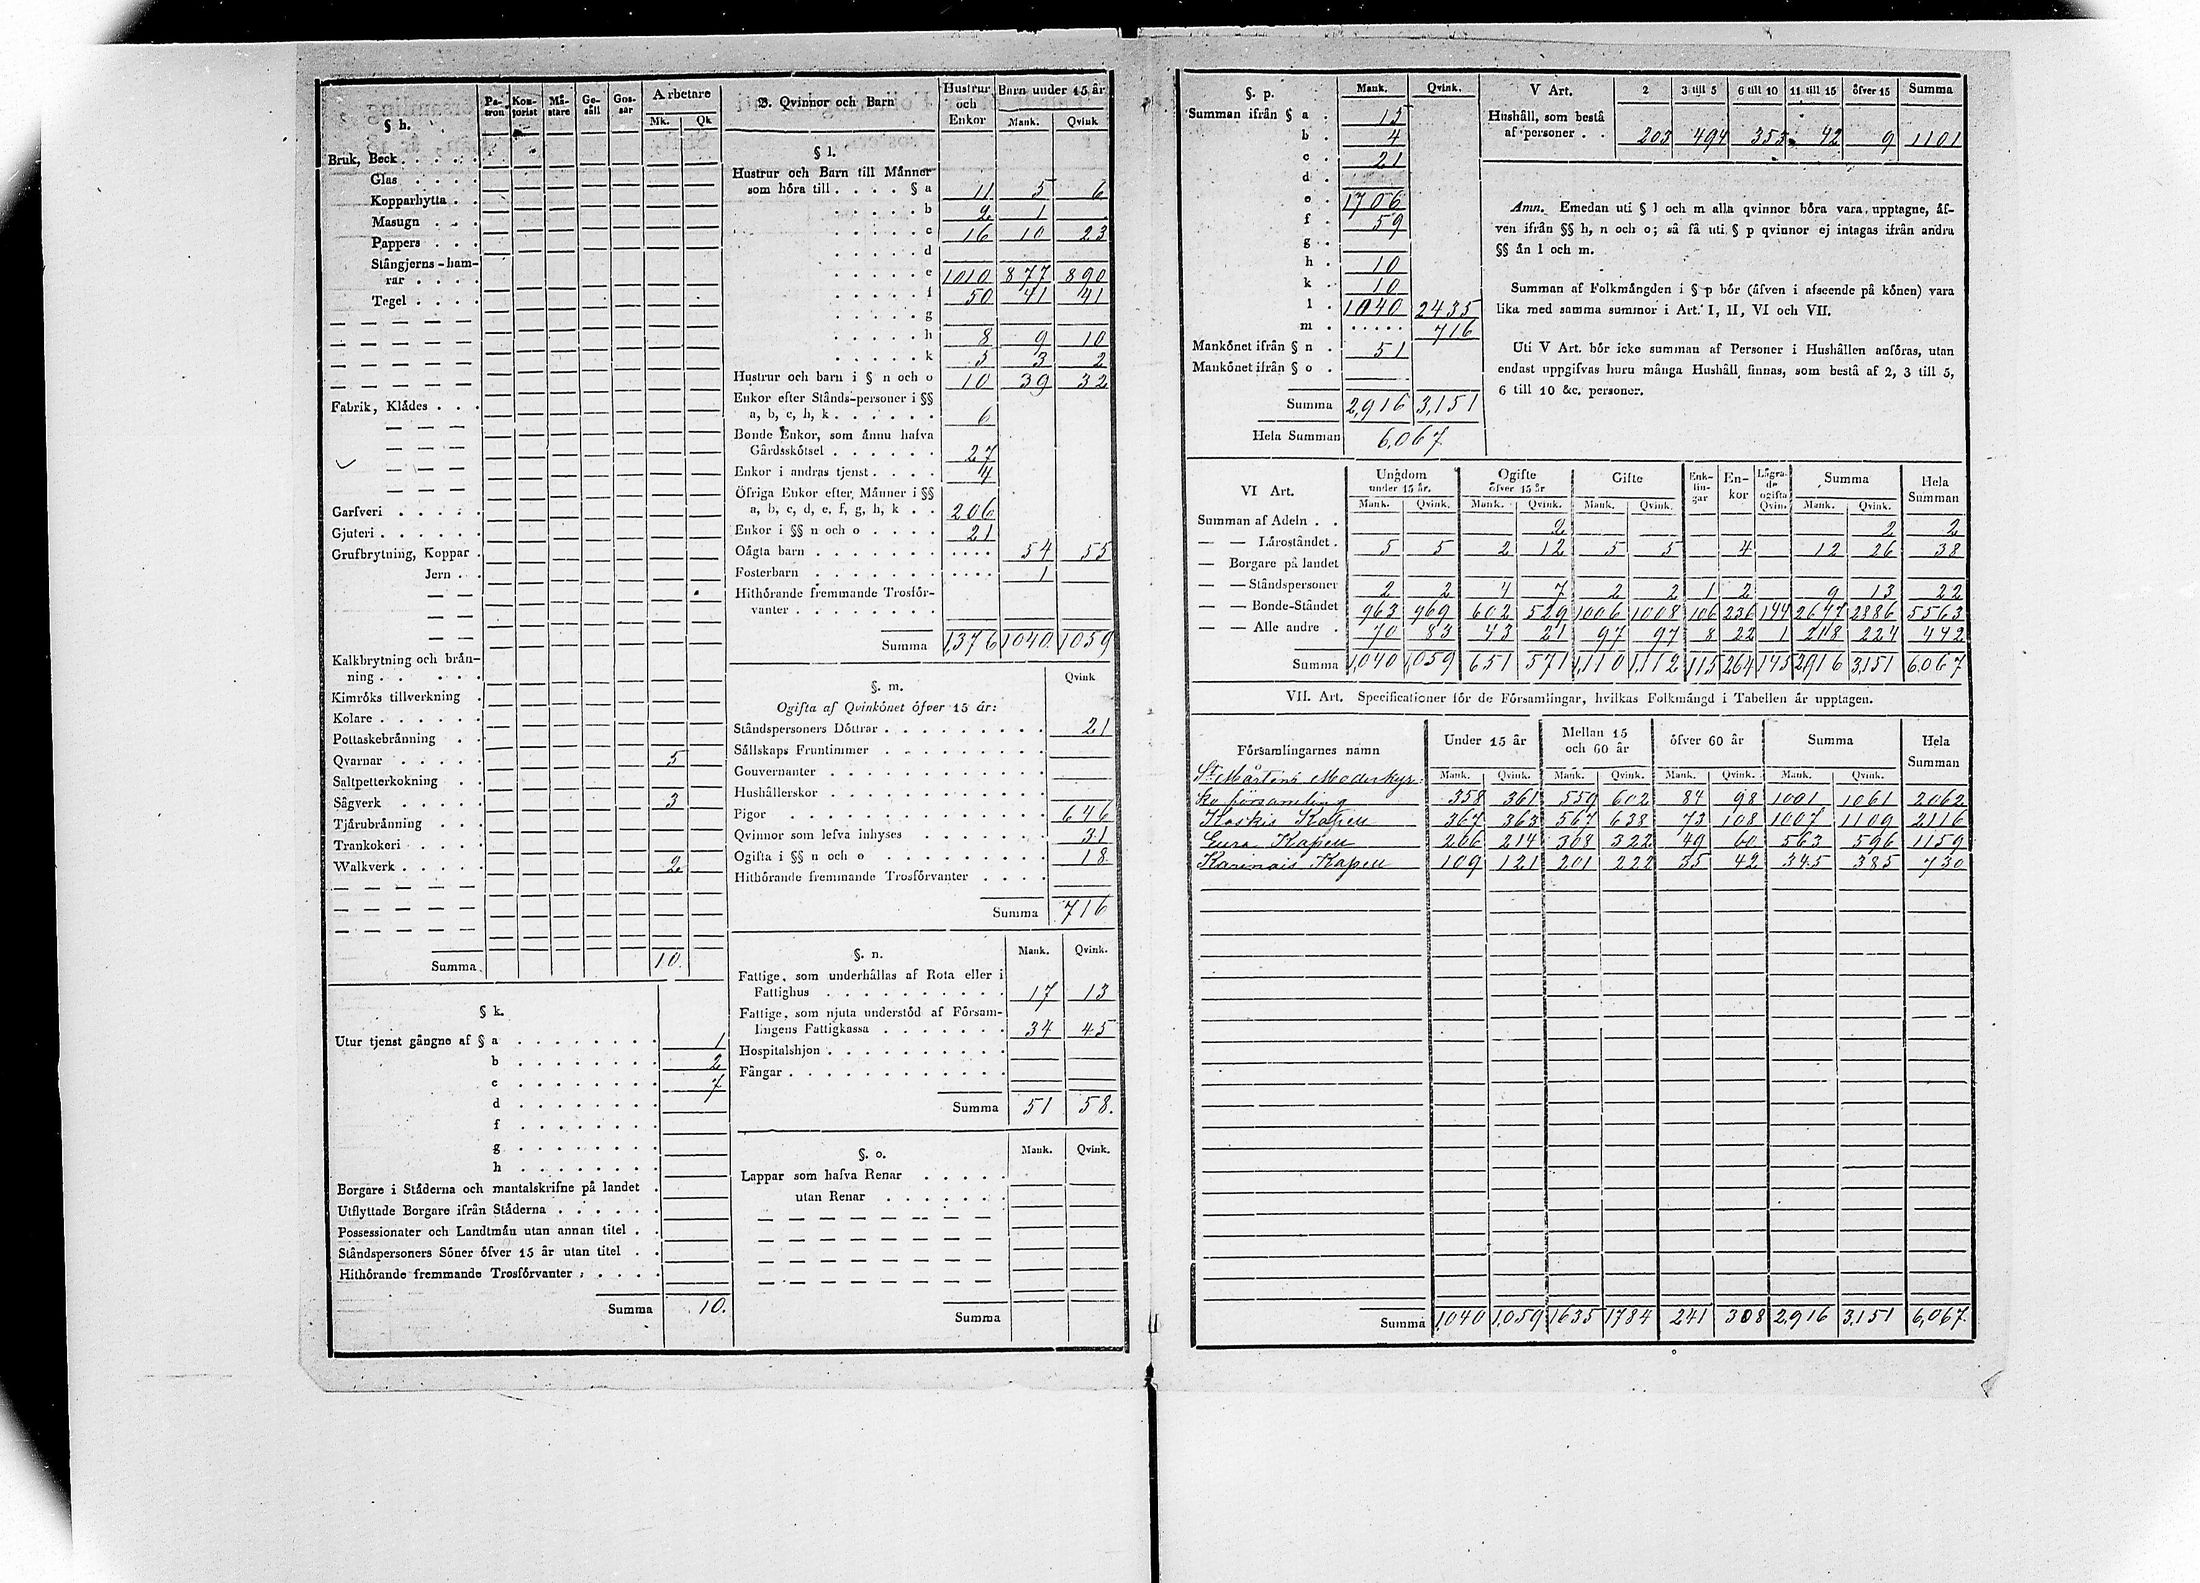 § h. Pa-tron Kon-torist Må-stare Ge-säll Gos-sar Arbetare
Mk. Qk
Bruk, Beck . . . . .
Glas . . . .
Kopparhytta . .
Masugn . . .
Pappers . . .
Stångjerns-ham-
rar . . . .
Tegel . . . .
— — — —
— — — —
— — — —
— — — —
Fabrik, Klådes . . .
— — —
— — —
— — —
— — —
Garfveri . . . . .
Gjuteri . . . . . .
Grufbrytning, Koppar .
Jern . .
— —
— —
— —
Kalkbrytning och brån-
ning . . . . . .
Kimröks tillverkning .
Kolare . . . . . .
Pottaskebrånning . .
Qvarnar . . . . . 5
Saltpetterkokning . .
Sågverk . . . . . 3
Tjårubrånning . . .
Trankokeri . . . .
Walkverk . . . . . 2
— — — —
— — — —
— — — —
Summa . 10.
§ k.
Utur tjenst gångne af § a . . . . . . . . 1
b . . . . . . . . 2
c . . . . . . . . 7
d . . . . . . . .
f . . . . . . . .
g . . . . . . . .
h . . . . . . . .
Borgare i Ståderna och mantalskrifne på landet .
Utflyttade Borgare ifrån Ståderna . . . . . .
Possessionater och Landtmån utan annan titel . .
Ståndspersoners Söner öfver 15 år utan titel . .
Hithörande fremmande Trosförvanter . . . . .
Summa 10.
B. Qvinnor och Barn Hustrur och Enkor Barn under 15 år
Mank. Qvink
§ l.
Hustrur och Barn till Månner
som höra till . . . . § a 11 5 6
. . . . . b 2 1
. . . . . c 16 10 23
. . . . . d
. . . . . e 1010 877 890
. . . . . f 50 41 41
. . . . . g
. . . . . h 8 9 10
. . . . . k 5 3 2
Hustrur och barn i § n och o 10 39 32
Enkor efter Stånds-personer i §§
a, b, c, h, k . . . . . . 6
Bonde Enkor, som ånnu hafva
Gårdsskötsel . . . . . . 27
Enkor i andras tjenst . . . . 4
Öfriga Enkor efter Månner i §§
a, b, c, d, e, f, g, h, k . . 206
Enkor i §§ n och o . . . . 21
Oågta barn . . . . . . . . . . . 54 55
Fosterbarn . . . . . . . . . . . 1
Hithörande fremmande Trosför-
vanter . . . . . . . .
Summa 1,376 1040 1059
§. m. Qvink
Ogifta af Qvinkönet öfver 15 år:
Ståndspersoners Döttrar . . . . . . . . . 21
Sållskaps Fruntimmer . . . . . . . . .
Gouvernanter . . . . . . . . . . .
Hushållerskor . . . . . . . . . . .
Pigor . . . . . . . . . . . . . 646
Qvinnor som lefva inhyses . . . . . . . 31
Ogifta i §§ n och o . . . . . . . . . 18
Hithörande fremmande Trosförvanter . . . .
Summa 716
§. n. Mank. Qvink.
Fattige, som underhållas af Rota eller i
Fattighus . . . . . . . . . . 17 13
Fattige, som njuta understöd af Försam-
lingens Fattigkassa . . . . . . . 34 45
Hospitalshjon . . . . . . . . . .
Fångar . . . . . . . . . . . .
Summa 51 58.
§. o. Mank. Qvink.
Lappar som hafva Renar . . . . .
utan Renar . . . . . . .
— — — — — — — —
— — — — — — — —
— — — — — — — —
— — — — — — — —
Summa
§. p. Mank. Qvink.
Summan ifrån § a . 15
b . 4
c . 21
d .
e . 1706
f . 59
g .
h . 10
k . 10
l . 1040 2435
m . . . . . . 716
Mankönet ifrån § n . 51
Mankönet ifrån § o .
Summa 2,916 3,151
Hela Summan 6,067
V Art. 2 3 till 5 6 till 10 11 till 15 öfver 15 Summa
Hushåll, som bestå
af personer . . 203 494 353 42 9 1101
Anm. Emedan uti § l och m alla qvinnor böra vara upptagne, åf-
ven ifrån §§ h, n och o; så få uti § p qvinnor ej intagas ifrån andra
§§ ån l och m.
Summan af Folkmångden i § p bör (åfven i afseende på könen) vara
lika med samma summor i Art. I, II, VI och VII.
Uti V Art. bör icke summan af Personer i Hushållen anföras, utan
endast uppgifvas huru många Hushåll finnas, som bestå af 2, 3 till 5,
6 till 10 &c. personer.
VI Art. Ungdom under 15 år. Ogifte öfver 15 år Gifte Enk-lin-gar En-kor Lågra-de ogifta Qvin Summa Hela Summan
Mank. Qvink. Mank. Qvink. Mank. Qvink. Mank. Qvink.
Summan af Adeln . . 2 2 2
— — Låroståndet . 5 5 2 12 5 5 4 12 26 38
— Borgare på landet
— — Ståndspersoner 2 2 4 7 2 2 1 2 9 13 22
— — Bonde-Ståndet 963 969 602 529 1006 1008 106 236 144 2677 2886 5563
— — Alle andre . 70 83 43 21 97 97 8 22 1 218 224 442
Summa 1,040 1,059 651 571 1,110 1,112 115 264 145 2916 3,151 6,067
VII. Art. Specificationer för de Församlingar, hvilkas Folkmångd i Tabellen år upptagen.
Församlingarnes namn Under 15 år Mellan 15 och 60 år öfver 60 år Summa Hela Summan
Mank. Qvink. Mank. Qvink. Mank. Qvink. Mank. Qvink.
St Mårtens Moderkyr-
ko församling 358 361 559 602 84 98 1001 1061 2062
Koskis Kapell 367 363 567 638 73 108 1007 1109 2116
Eura Kapell 206 214 308 322 49 60 563 596 1159
Karinais Kapell 109 121 201 222 35 42 345 385 730
Summa 1,040 1,059 1635 1784 241 308 2,916 3,151 6,067.